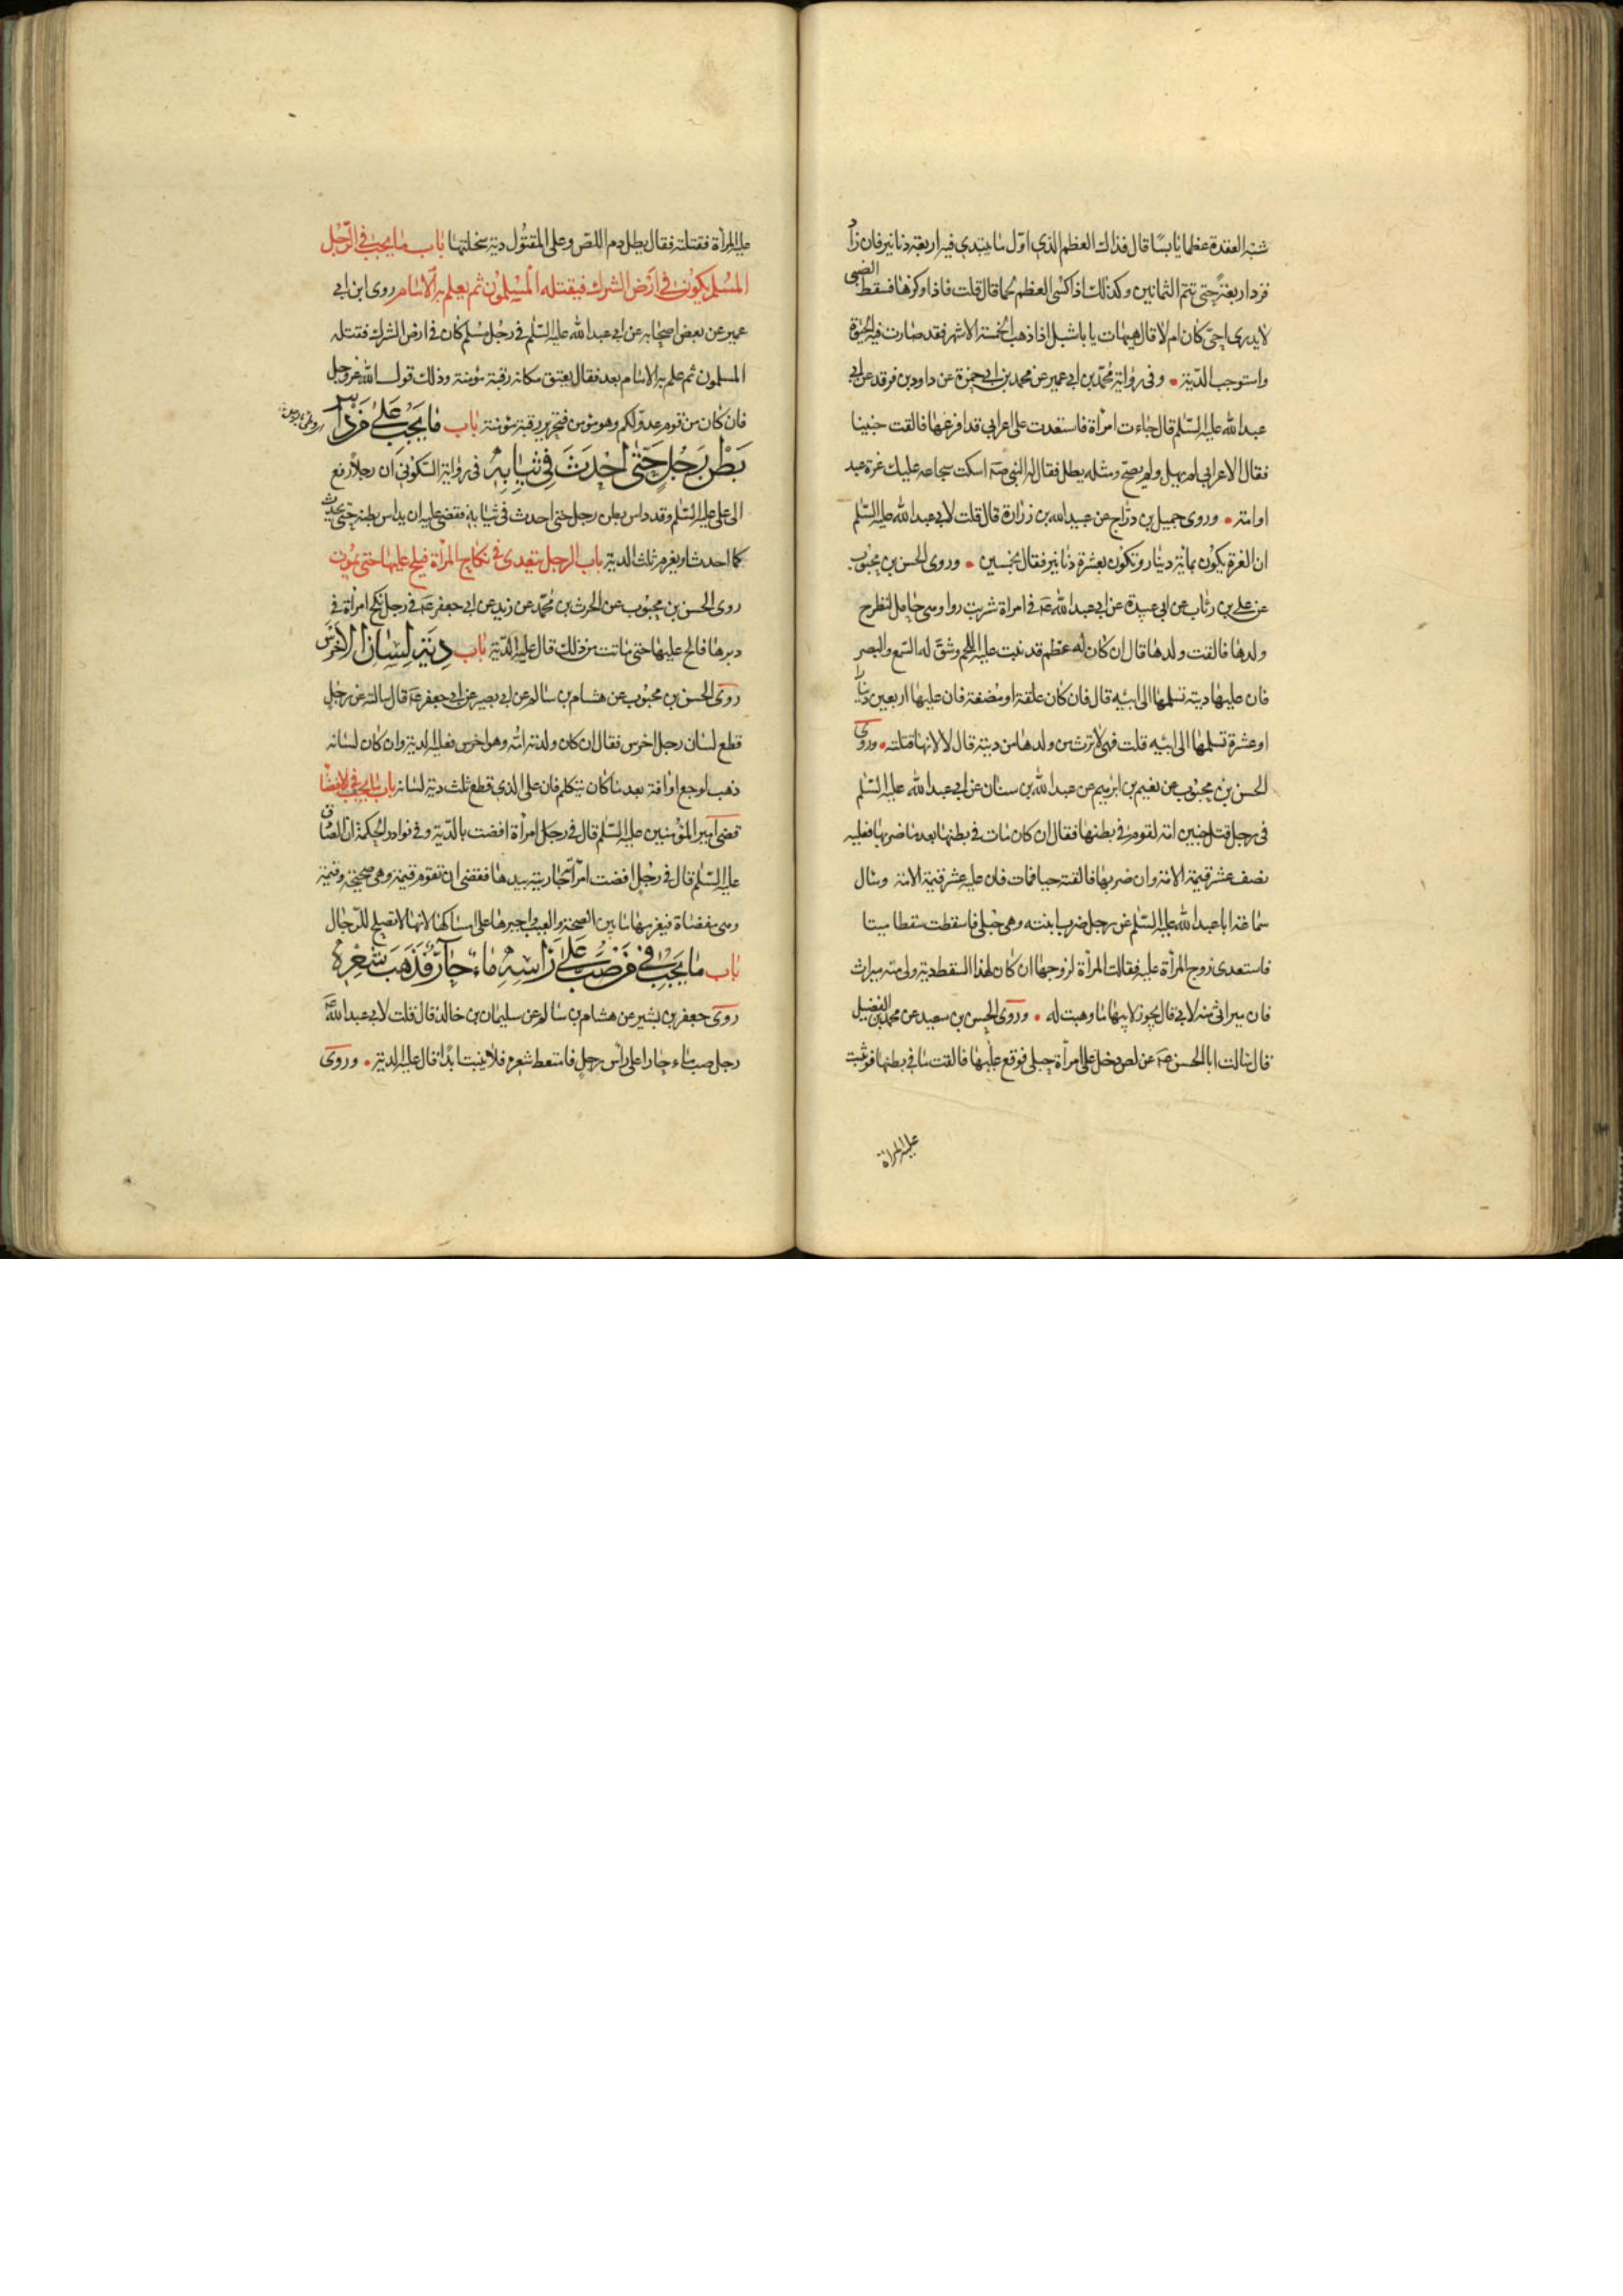 شبه العقدة عظما يابسا قال فذاك العظم الذي اول ما يبتدى فيه اربعة دنانير فان زاد
فزد اربعة حتى تتم الثمانين وكذلك اذا كسى العظم لحما قال قلت فاذا وكزها فسقط الصبى
لا يدرى احى كان ام لا قال هيهات يا با شبل اذا ذهب الخمسة الاشهر فقد صارت فيه الحيوة
واستوجب الدية • وفى رواية محمد بن ابى عمير عن محمد بن ابى حمزة عن داود بن فرقد عن ابى
عبد الله عليه السلم قال جاءت امراة فاستعدت على اعرابى قد افزعها فالقت جنينا
فقال الاعرابى لم يهل ولم يصح ومثله يطل فقال له النبى صه اسكت سجاعه عليك غرة عبد
او امة • وروى جميل بن دراج عن عبيد الله بن زرارة قال قلت لابى عبد الله عليه السلم
ان الغرة يكون بمائة دينار وتكون بعشرة دنانير فقال بخمسين • وروى الحسن بن محبوب
عن على بن رئاب عن ابى عبيدة عن ابى عبد الله عه فى امراة شربت دواء وهى حامل لتطرح
ولدها فالقت ولدها قال ان كان له عظم قد نبت عليه اللحم وشق له السمع والبصر
فان عليها دية تسلمها الى ابيه قال فان كان علقة او مضغة فان عليها اربعين دينارا
او عشرة تسلمها الى ابيه قلت فهى لا ترث من ولدها من ديته قال لا لانها قتلته • وروى
الحسن بن محبوب عن نعيم بن ابرهيم عن عبد الله بن سنان عن ابى عبد الله عليه السلم
فى رجل قتل جنين امة لقوم فى بطنها فقال ان كان مات فى بطنها بعد ما ضربها فعليه
نصف عشر قيمة الامة وان ضربها فالقته حيا فمات فان عليه عشر قيمة الامة وسال
سماعة ابا عبد الله عليه السلم عن رجل ضرب ابنته وهى حبلى فاسقطت سقطا ميتا
فاستعدى زوج المراة عليه فقالت المراة لزوجها ان كان لهذا السقط دية ولى منه ميراث
فان ميراثى منه لابى قال يجوز لابيها ما وهبت له • وروى الحسين بن سعيد عن محمد بن الفضيل
قال سالت ابا الحسن عه عن لص دخل على امراة حبلى فوقع عليها فالقت ما فى بطنها فوثبت
عليه المراة
عليه المراة فقتلته فقال يطل دم اللص وعلى المقتول دية سخلتها باب ما يجب فى الرجل
المسلم يكون فى ارض الشرك فيقتله المسلمون ثم يعلم به الامام روى ابن ابى
عمير عن بعض اصحابه عن ابى عبد الله عليه السلم فى رجل مسلم كان فى ارض الشرك فقتله
المسلمون ثم علم به الامام بعد فقال يعتق مكانه رقبة مؤمنة وذلك قول الله عز وجل
فان كان من قوم عدو لكم وهو مؤمن فتحرير رقبة مؤمنة باب ما يجب على من داس
بطن رجل حتى احدث فى ثيابه فى رواية السكونى ان رجلا رفع
الى على عليه السلم وقد داس بطن رجل حتى احدث فى ثيابه فقضى عليه ان يداس بطنه حتى يحدث
كما احدث او يغرم ثلث الدية باب الرجل يتعدى فى نكاح المراة فيلح عليها حتى يموت
روى الحسن بن محبوب عن الحرث بن محمد عن زيد عن ابى جعفر عه فى رجل نكح امراة فى
دبرها فالح عليها حتى ماتت من ذلك قال عليه الدية باب دية لسان الاخرس
روى الحسن بن محبوب عن هشام بن سالم عن ابى بصير عن ابى جعفر عه قال سالته عن رجل
قطع لسان رجل اخرس فقال ان كان ولدته امه وهو اخرس فعليه الدية وان كان لسانه
ذهب لوجع او افة بعد ما كان يتكلم فان على الذى قطع ثلث دية لسانه باب ما يجب فى الافضا
قضى امير المؤمنين عليه السلم قال فى رجل امراة افضت بالدية وفى نوادر الحكمة ان الصادق
عليه السلم قال فى رجل افضت امراته جاريته بيدها فقضى ان تقوم قيمة وهى صحيحة وقيمة
وهى مفضاة فيغرمها ما بين الصحة والعيب واجبرها على امساكها لانها لا تصلح للرجال
باب ما يجب فى من صب على راسه ماء حار فذهب شعره
روى جعفر بن بشير عن هشام بن سالم عن سليمان بن خالد قال قلت لابى عبد الله عه
رجل صب ماء حارا على راس رجل فامتعط شعره فلا ينبت ابدا قال عليه الدية • وروى